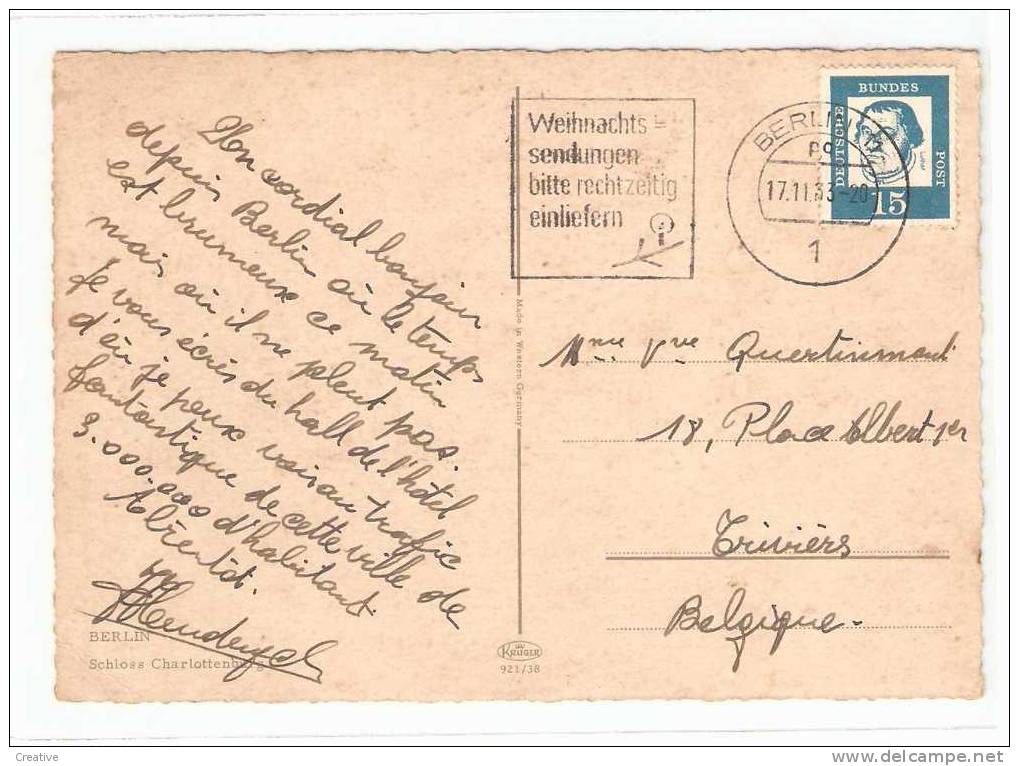 Mon cordial bonjour
depuis Berlin où le temps
est brumeux ce matin
mais où il ne pleut pas.
Je vous écris du hall de l'hôtel
d'où je peux voir au trafic
fantastique de cette ville de
3.000.000 d'habitant.
A bientôt.
BERLIN
Schloss Charlottenburg
Made in Western Germany
KRÜGER
921/38
Weihnachts-
sendungen
bitte rechtzeitig
einliefern
BERLIN
17.11.63-20
1
DEUTSCHE
BUNDES
POST
15
Mme Vve Quertinmont
18, Place Albert 1er
Trivièrs
Belgique.
Creative
www.delcampe.net